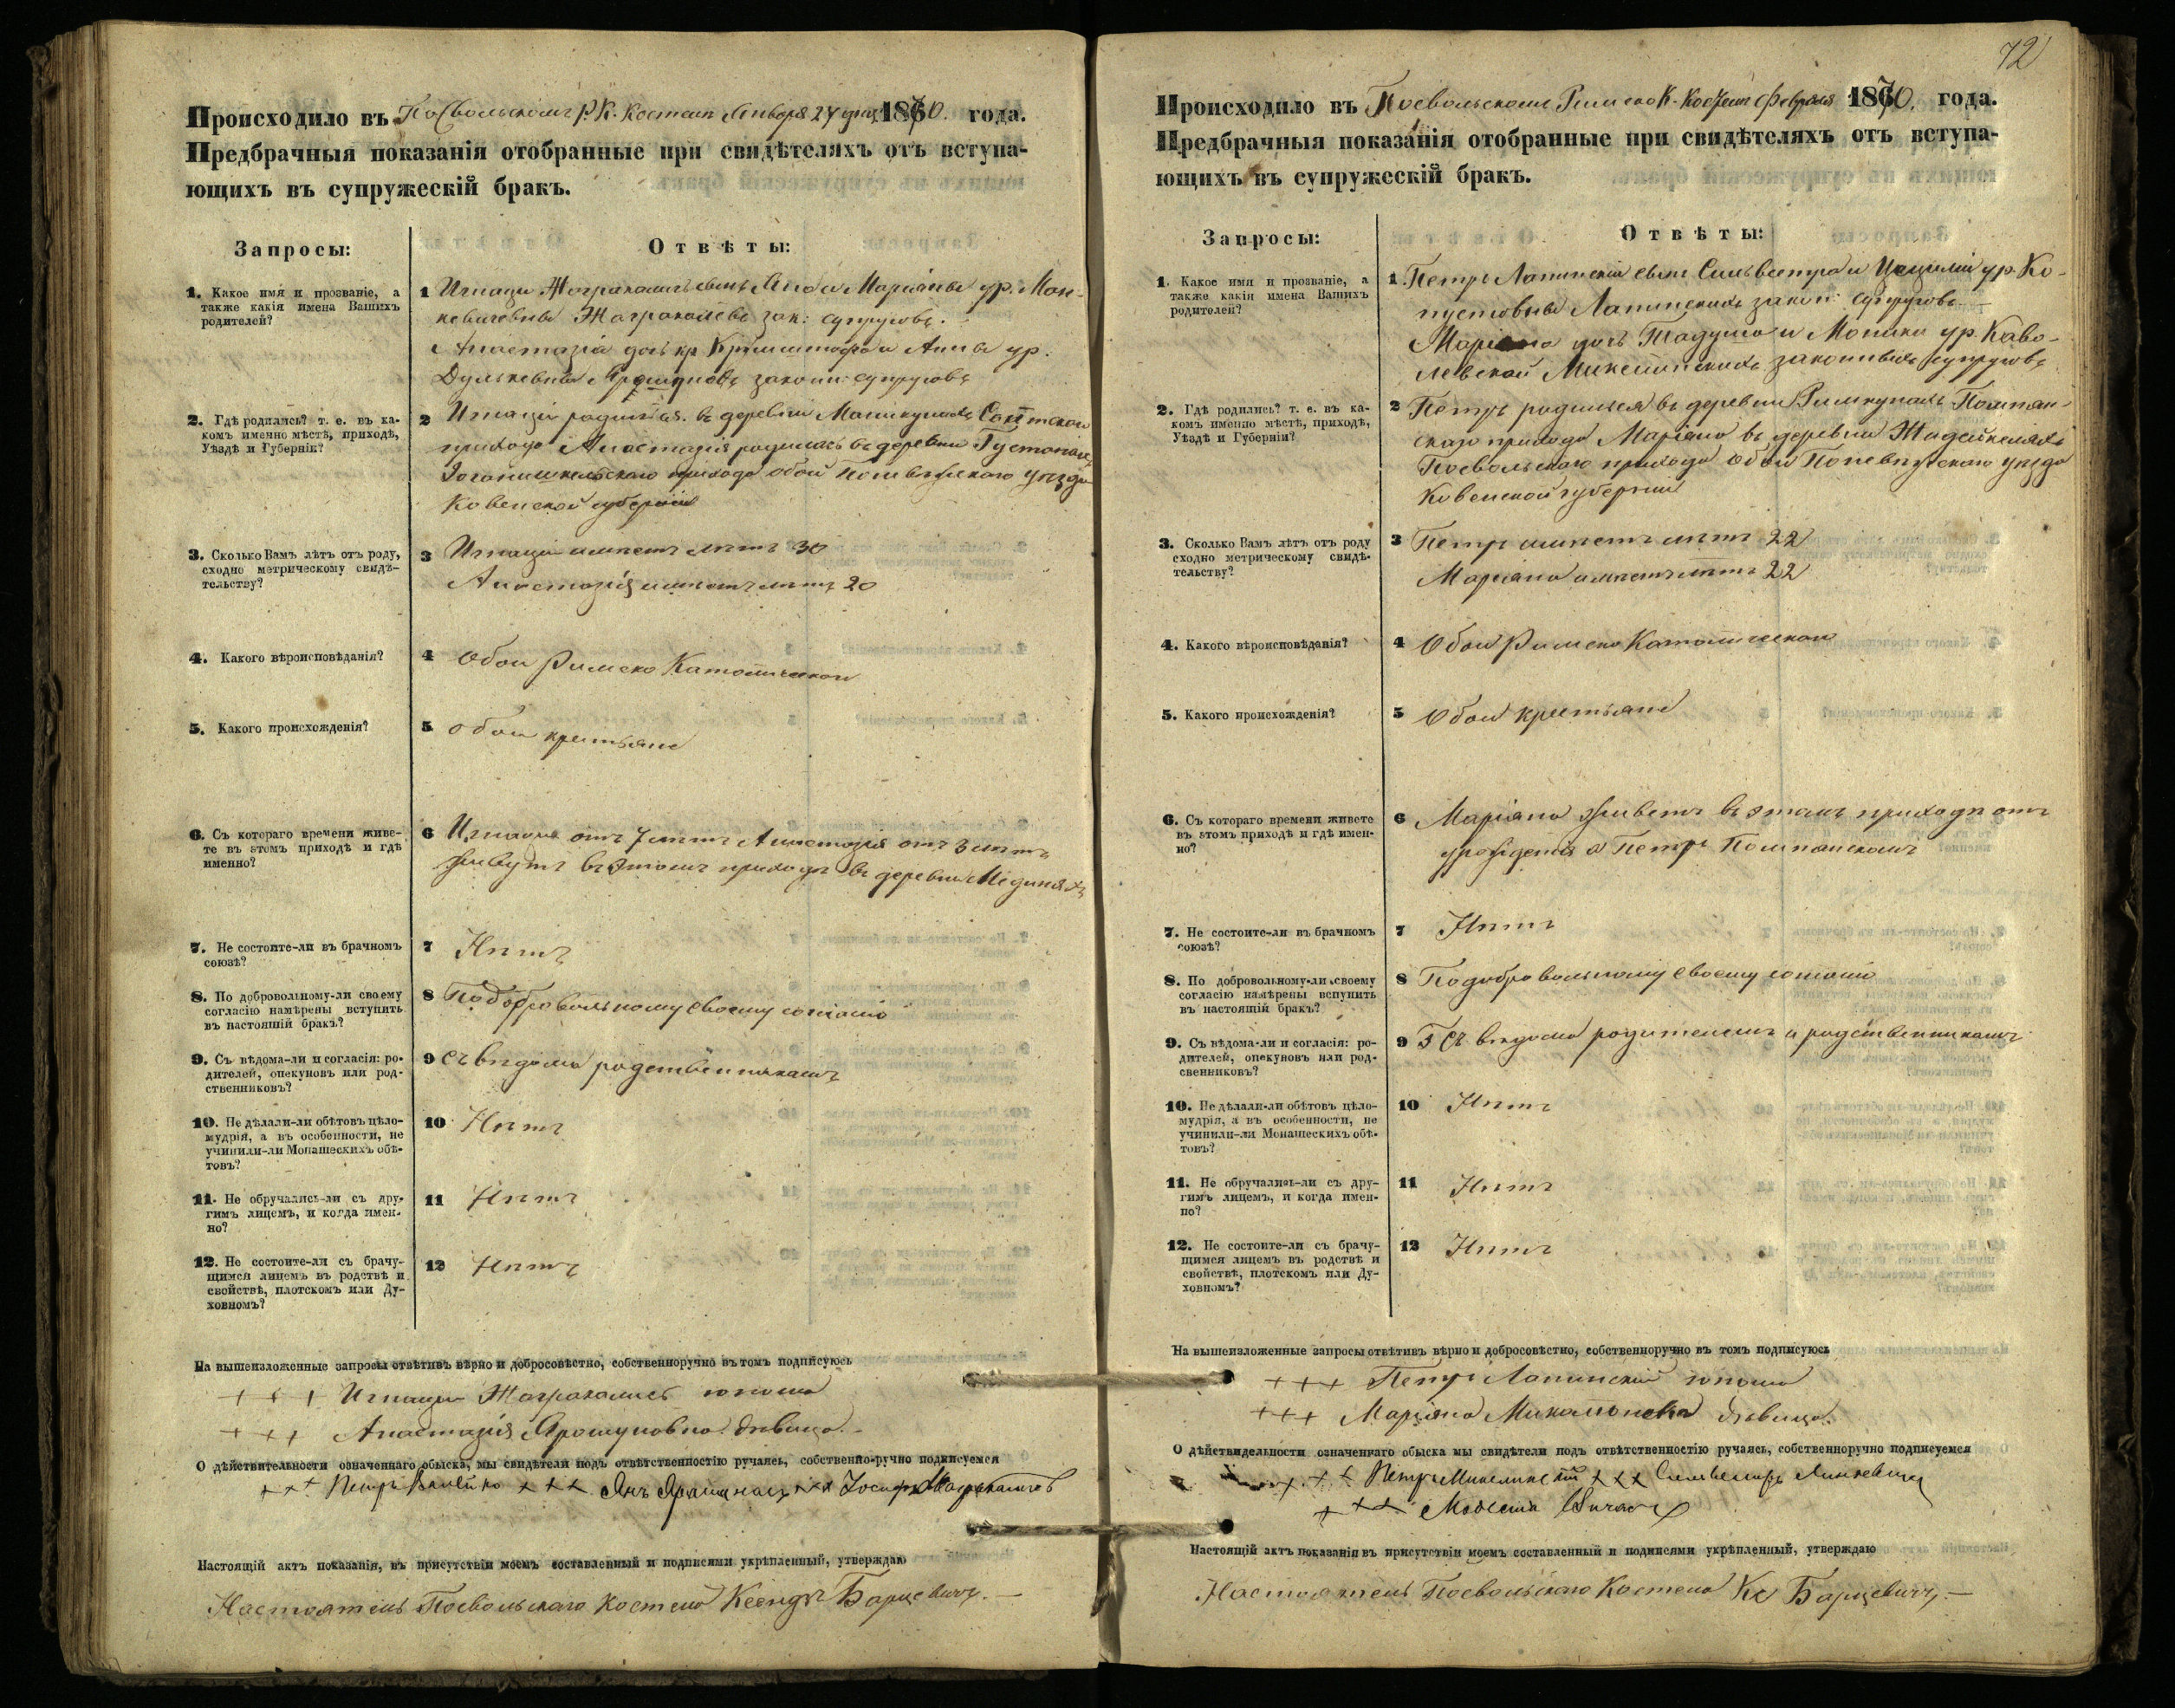 Происходило въ Посвольскомъ Р. К. Костелѣ Января 24 дня 1870. года.
Предбрачныя показанія отобранные при свидѣтеляхъ отъ вступа-
ющихъ въ супружескій бракъ.
Запросы:
Отвѣты:
1. Какое имя и прозваніе, а
также какія имена Вашихъ
родителей?
1 Игнаци сынъ и Маріанны ур. Мон-
кевичевны зак: супруговъ.
Анастазія дочь кр и Анны ур.
законн: супруговъ
2. Гдѣ родились? т. е. въ ка-
комъ именно мѣстѣ, приходѣ,
Уѣздѣ и Губерніи?
2 Игнаци родился въ деревни
прихода Анастазія родилась въ деревни
прихода обои Поневѣжскаго уѣзда
Ковенской губерніи
3. Сколько Вамъ лѣтъ отъ роду,
сходно метрическому свидѣ-
тельству?
3 Игнаци имѣетъ лѣтъ 30
Анастазія имѣетъ лѣтъ 20
4. Какого вѣроисповѣданія?
4 Обои Римско Католической
5. Какого происхожденія?
5 обои крестьяне
6. Съ котораго времени живе-
те въ этомъ приходѣ и гдѣ
именно?
6 Игнаци отъ 7 лѣтъ Анастазія отъ 3 лѣтъ
живутъ въ этомъ приходѣ въ деревни
7. Не состоите-ли въ брачномъ
союзѣ?
7 Нѣтъ
8. По добровольному-ли своему
согласію намѣрены вступить
въ настоящій бракъ?
8 По добровольному своему согласію
9. Съ вѣдома-ли и согласія: ро-
дителей, опекуновъ или род-
ственниковъ?
9 Съ вѣдома родственникамъ
10. Не дѣлали-ли обѣтовъ цѣло-
мудрія, а въ особенности, не
учинили-ли Монашескихъ обѣ-
товъ?
10 Нѣтъ
11. Не обручались-ли съ дру-
гимъ лицемъ, и когда имен-
но?
11 Нѣтъ
12. Не состоите-ли съ брачу-
щимся лицемъ въ родствѣ и
свойствѣ, плотскомъ или Ду-
ховномъ?
12 Нѣтъ
На вышеизложенные запросы отвѣтивъ вѣрно и добросовѣстно, собственноручно въ томъ подписуюсь
+ + + Игнаци юноша
+ + + Анастазія Ярошуновна дѣвица.
О дѣйствительности означеннаго обыска, мы свидѣтели подъ отвѣтственностію ручаясь, собственно-ручно подписуемся
+ + + Петръ + + + Янъ + + + Іосифъ
Настоящій актъ показанія, въ присутствіи моемъ составленный и подписями укрѣпленный, утверждаю
Настоятель Посвольскаго костела Ксендзъ Барцевичъ.
72
Происходило въ Посвольскомъ Римско К. Костелѣ Февраля 1870. года.
Предбрачныя показанія отобранные при свидѣтеляхъ отъ вступа-
ющихъ въ супружескій бракъ.
Запросы:
Отвѣты:
1. Какое имя и прозваніе, а
также какія имена Вашихъ
родителей?
1. Петръ Лапинскій сынъ Сильвестра и Цециліи ур. Ко-
пустовны Лапинскихъ закон: супруговъ
Маріана дочь Тадуша и Моники ур. Каво-
левской законныхъ супруговъ
2. Гдѣ родились? т. е. въ ка-
комъ именно мѣстѣ, приходѣ,
Уѣздѣ и Губерніи?
2 Петръ родился въ деревни Римкунахъ Помпян-
скаго прихода Маріана въ деревни
Посвольскаго прихода обои Поневѣжскаго уѣзда
Ковенской губерніи
3. Сколько Вамъ лѣтъ отъ роду
сходно метрическому свидѣ-
тельству?
3 Петръ имѣетъ лѣтъ 22
Маріана имѣетъ лѣтъ 22
4. Какого вѣроисповѣданія?
4 Обои Римско Католической
5. Какого происхожденія?
5 Обои крестьяне
6. Съ котораго времени живете
въ этомъ приходѣ и гдѣ имен-
но?
6 Маріана живетъ въ этомъ приходѣ отъ
урождения а Петръ Помпянскомъ
7. Не состоите-ли въ брачномъ
союзѣ?
7 Нѣтъ
8. По добровольному-ли своему
согласію намѣрены вспупить
въ настоящій бракъ?
8 По добровольному своему согласію
9. Съ вѣдома-ли и согласія: ро-
дителей, опекуновъ или род-
свенниковъ?
9 Съ вѣдома родителемъ и родственникамъ
10. Не дѣлали-ли обѣтовъ цѣло-
мудрія, а въ особенности, не
учинили-ли Монашескихъ обѣ-
товъ?
10 Нѣтъ
11. Не обручались-ли съ дру-
гимъ лицемъ, и когда имен-
но?
11 Нѣтъ
12. Не состоите-ли съ брачу-
щимся лицемъ въ родствѣ и
свойствѣ, плотскомъ или Ду-
ховномъ?
12 Нѣтъ
На вышеизложенные запросы отвѣтивъ вѣрно и добросовѣстно, собственноручно въ томъ подписуюсь
+++ Петръ Лапинскій юноша
+++ Маріана дѣвица.
О дѣйствидельности означеннаго обыска мы свидѣтели подъ отвѣтственностію ручаясь, собственноручно подписуемся
+ + + Петръ + + + Сильвестръ
+ + +
Настоящій актъ показанія въ присутствіи моемъ составленный и подписями укрѣпленный, утверждаю
Настоятель Посвольскаго Костела Кс Барцевичъ.